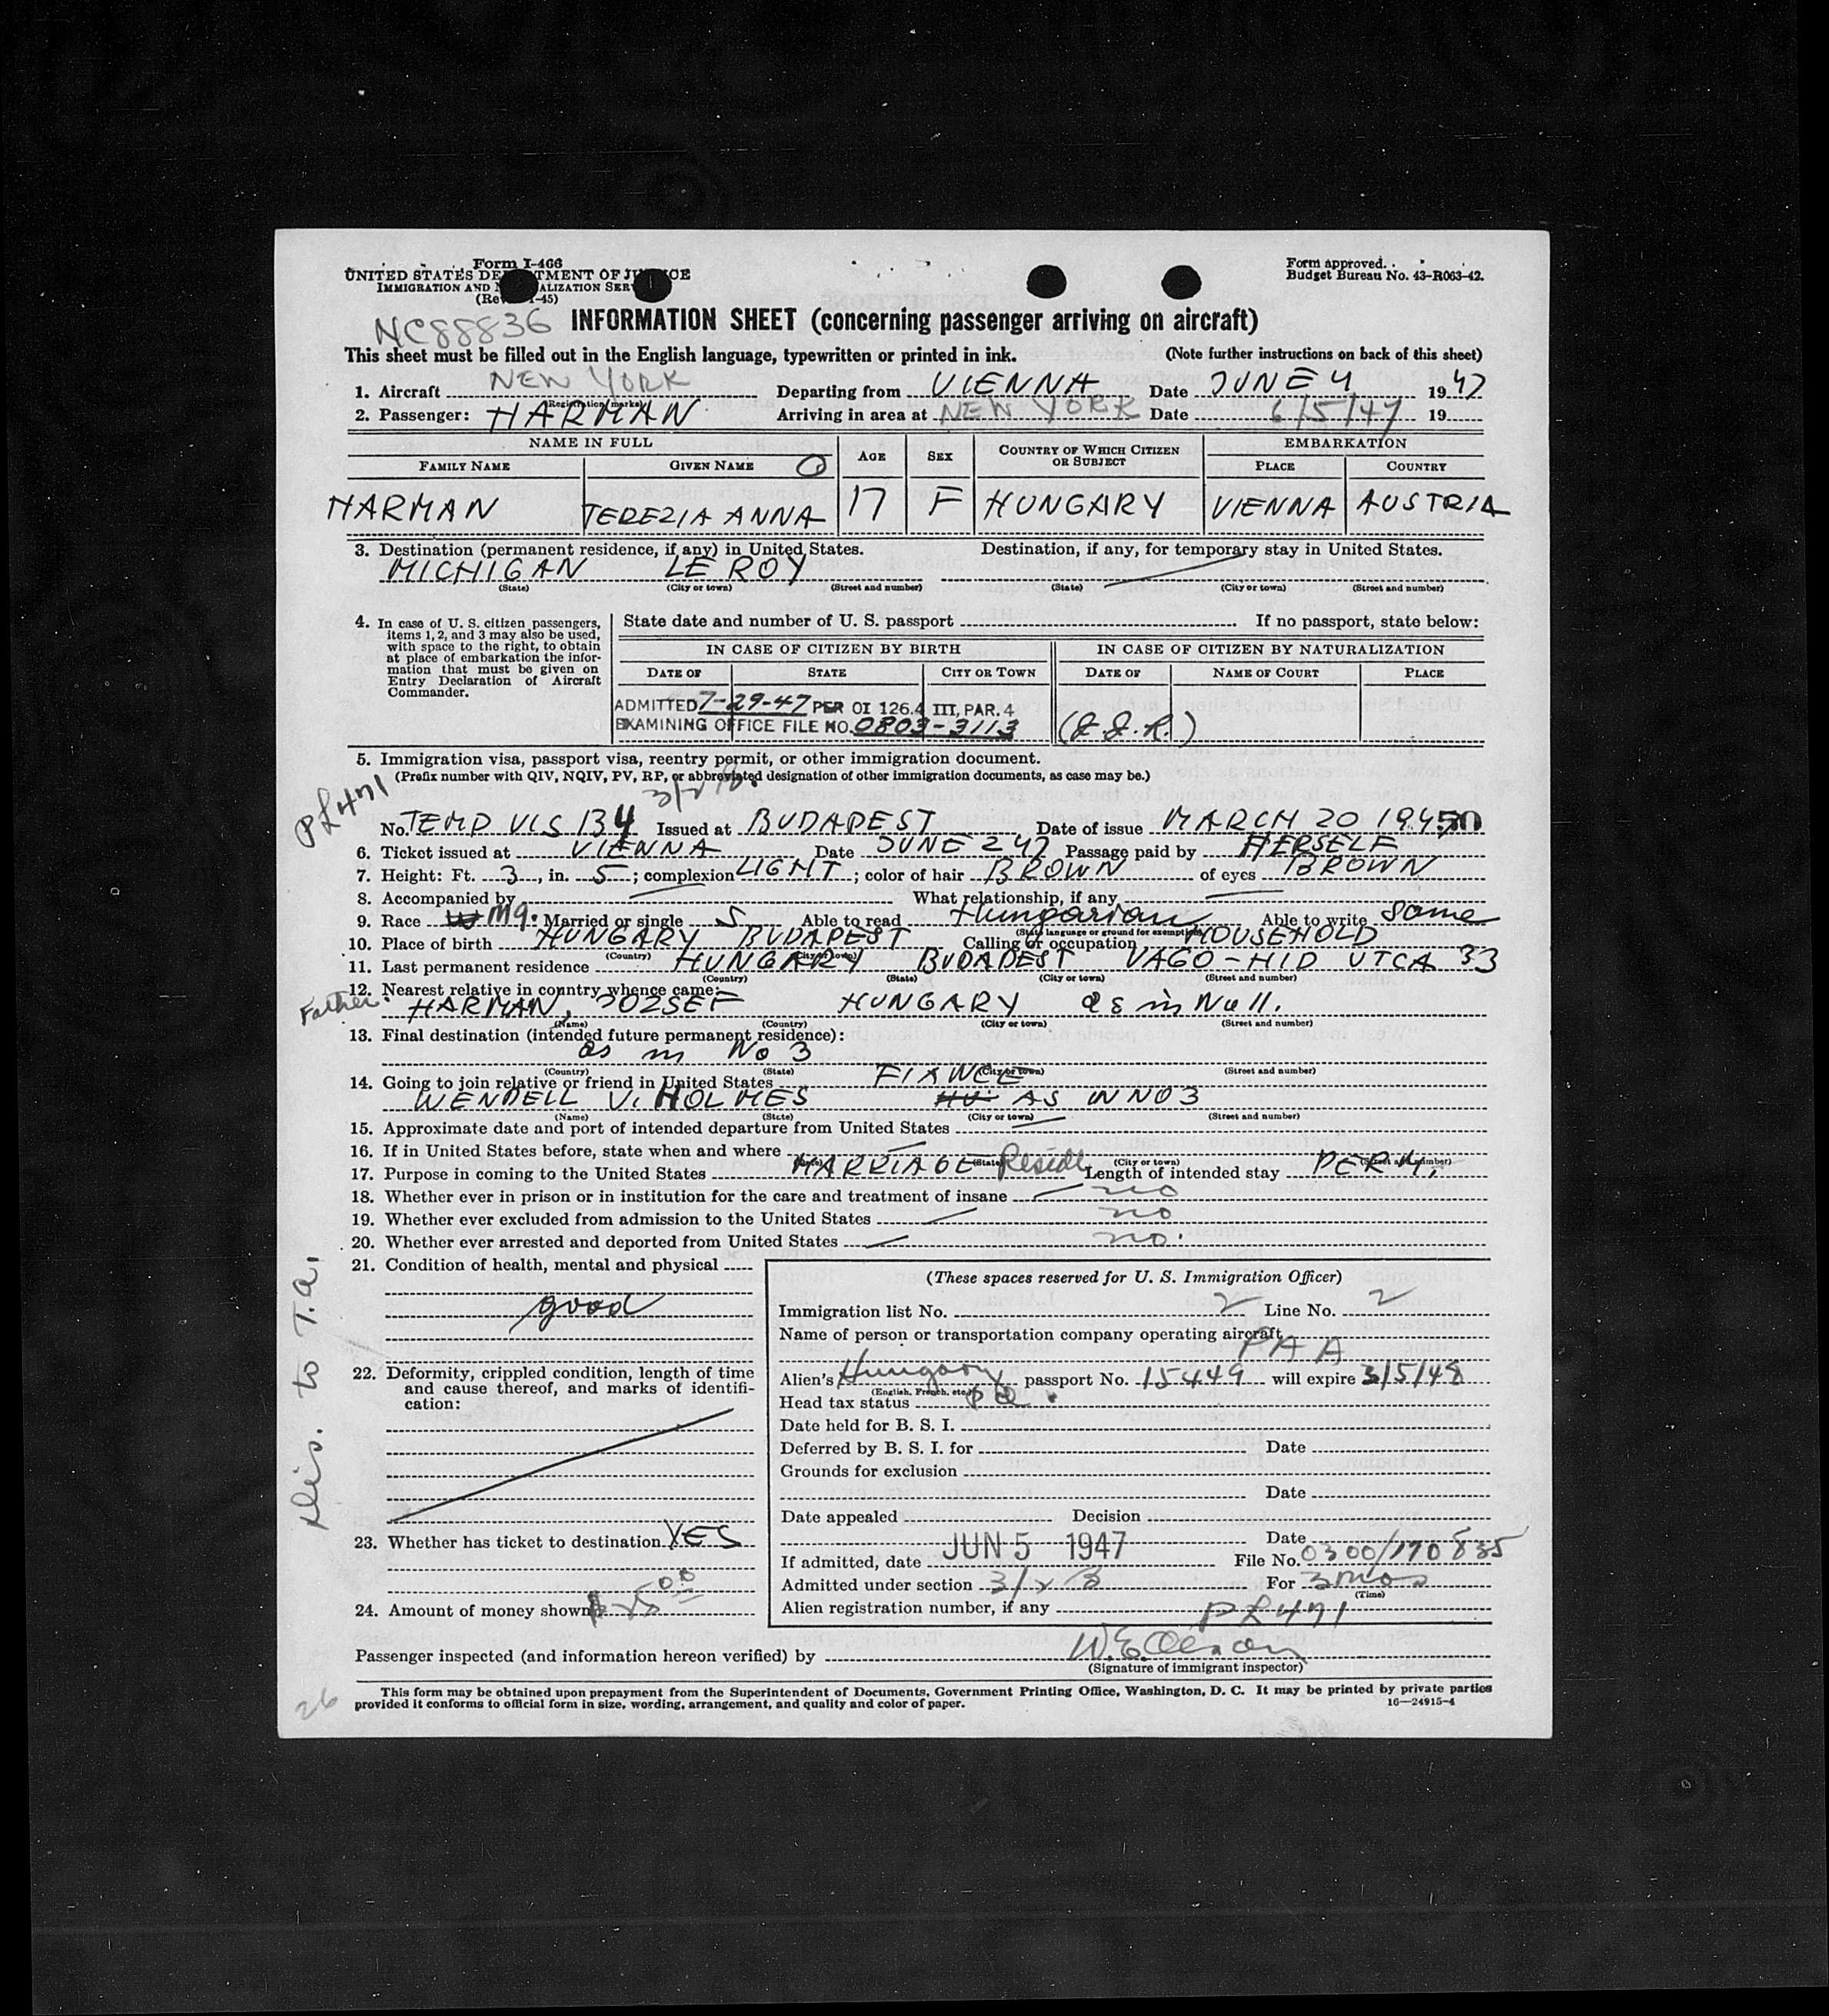 Form I-466
UNITED STATES DE TMENT OF JU ICE
IMMIGRATION AND N ALIZATION SER
(Re -45)
Form approved.
Budget Bureau No. 43-R063-42.
NC88836
INFORMATION SHEET (concerning passenger arriving on aircraft)
This sheet must be filled out in the English language, typewritten or printed in ink. (Note further instructions on back of this sheet)
1. Aircraft NEW YORK Departing from VIENNA Date JUNE 4 1947
(Registration marks)
2. Passenger: HARMAN Arriving in area at NEW YORK Date 6/5/47 19
NAME IN FULL AGE SEX COUNTRY OF WHICH CITIZEN OR SUBJECT EMBARKATION
FAMILY NAME GIVEN NAME PLACE COUNTRY
HARMAN TEREZIA ANNA 17 F HUNGARY VIENNA AUSTRIA
3. Destination (permanent residence, if any) in United States. Destination, if any, for temporary stay in United States.
MICHIGAN LE ROY
(State) (City or town) (Street and number) (State) (City or town) (Street and number)
4. In case of U. S. citizen passengers,
items 1, 2, and 3 may also be used,
with space to the right, to obtain
at place of embarkation the infor-
mation that must be given on
Entry Declaration of Aircraft
Commander.
State date and number of U. S. passport If no passport, state below:
IN CASE OF CITIZEN BY BIRTH IN CASE OF CITIZEN BY NATURALIZATION
DATE OF STATE CITY OR TOWN DATE OF NAME OF COURT PLACE
ADMITTED 7-29-47 PER OI 126.4 III, PAR. 4
EXAMINING OFFICE FILE NO. 0803-3113 (J.J.R.)
5. Immigration visa, passport visa, reentry permit, or other immigration document.
(Prefix number with QIV, NQIV, PV, RP, or abbreviated designation of other immigration documents, as case may be.)
PL471
3/2 B.
No. TEMP VIS 134 Issued at BUDAPEST Date of issue MARCH 20 1947
6. Ticket issued at VIENNA Date JUNE 2 47 Passage paid by HERSELF
7. Height: Ft. 3, in. 5; complexion LIGHT; color of hair BROWN of eyes BROWN
8. Accompanied by What relationship, if any
9. Race Mg. Married or single S Able to read Hungarian Able to write Same
(State language or ground for exemption)
10. Place of birth HUNGARY BUDAPEST Calling or occupation HOUSEHOLD
(Country) (City or town)
11. Last permanent residence HUNGARY BUDAPEST VAGO-HID UTCA 33
(Country) (State) (City or town) (Street and number)
12. Nearest relative in country whence came:
Father. HARMAN, JOZSEF HUNGARY as in No 11.
(Name) (Country) (City or town) (Street and number)
13. Final destination (intended future permanent residence):
as in No 3
(Country) (State) (City or town) (Street and number)
14. Going to join relative or friend in United States FIANCE
WENDELL V. HOLMES AS IN NO 3
(Name) (State) (City or town) (Street and number)
15. Approximate date and port of intended departure from United States
16. If in United States before, state when and where
(State) (City or town) (Street and number)
17. Purpose in coming to the United States MARRIAGE Reside Length of intended stay PERM.
18. Whether ever in prison or in institution for the care and treatment of insane no
19. Whether ever excluded from admission to the United States no
20. Whether ever arrested and deported from United States no.
21. Condition of health, mental and physical
good
22. Deformity, crippled condition, length of time
and cause thereof, and marks of identifi-
cation:
23. Whether has ticket to destination YES
24. Amount of money shown $25.00
(These spaces reserved for U. S. Immigration Officer)
Immigration list No. 2 Line No. 2
Name of person or transportation company operating aircraft
PAA
Alien's Hungary passport No. 15449 will expire 3/5/48
(English, French, etc.)
Head tax status
Date held for B. S. I.
Deferred by B. S. I. for Date
Grounds for exclusion
Date
Date appealed Decision
Date
If admitted, date JUN 5 1947 File No. 0300/170835
Admitted under section 3/2 B For 3 mos
(Time)
Alien registration number, if any PL471
Dis. to T.A.
Passenger inspected (and information hereon verified) by
(Signature of immigrant inspector)
This form may be obtained upon prepayment from the Superintendent of Documents, Government Printing Office, Washington, D. C. It may be printed by private parties
provided it conforms to official form in size, wording, arrangement, and quality and color of paper. 16—24915-4
26